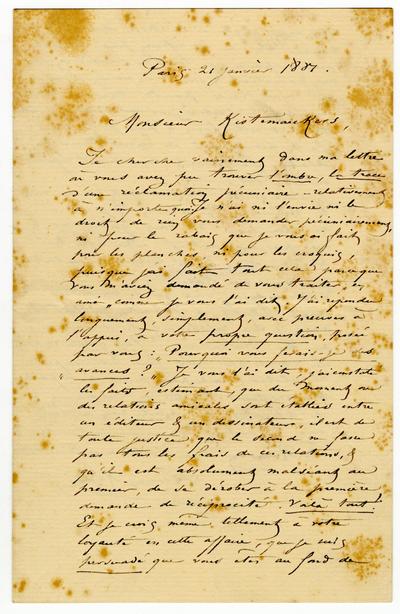 Paris 21 janvier 1881.
Monsieur Kistemaeckers,
Je cherche vainement dans ma lettre
où vous avez pu trouver l'ombre, la trace
d'une réclamation pécuniaire relativement
à n'importe quoi, je n'ai ni l'envie ni le
droit de rien vous demander pécuniairement,
ni pour le rabais que je vous ai fait
pour les planches, ni pour les croquis,
puisque j'ai fait tout cela parce que
vous m'aviez demandé de vous traiter en
ami, comme je vous l'ai dit. J'ai répondu
longuement, simplement, avec preuves à
l'appui, à votre propre question, posée
par vous: "Pourquoi vous ferais-je des
avances?" Je vous l'ai dit, j'ai constaté
les faits estimant, que du moment où
des relations amicales sont établies entre
un éditeur & un dessinateur, il est de
toute justice que le second ne fasse
pas tous les frais de ces relations, &
qu'il est absolument malséant au
premier, de se dérober à la première
demande de réciprocité. Voilà tout!
Et je crois même tellement à votre
loyauté en cette affaire, que je suis
persuadé que vous êtes au fond de